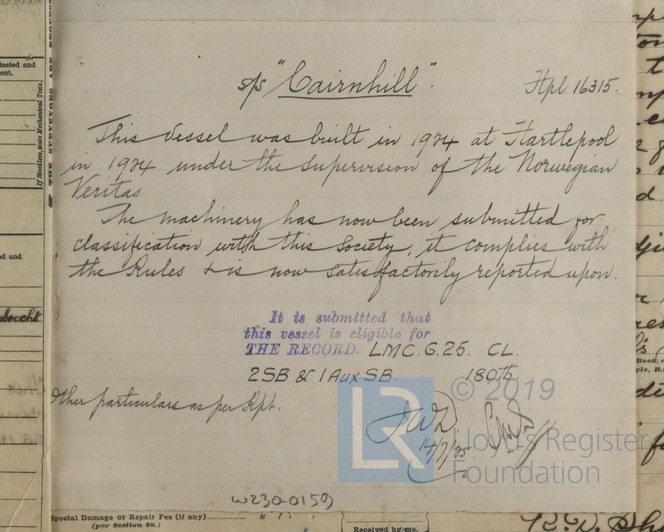 s/s "Cairnhill".
Hpl 16315.
This vessel was built in 1924 at Hartlepool
in 1924 under the supervision of the Norwegian
Veritas
The machinery has now been submitted for
classification with this Society, it complies with
the Rules & is now satisfactorily reported upon.
It is submitted that
this vessel is eligible for
THE RECORD. LMC. 6.25. CL.
2SB & 1 Aux SB. 180 lb.
Other particulars as per Rpt.
JWD
14/7/25
LR
© 2019
Lloyd's Register
Foundation
W230-0159
Special Damage or Repair Fee (if any)
(per Section 28.)
Received by me.